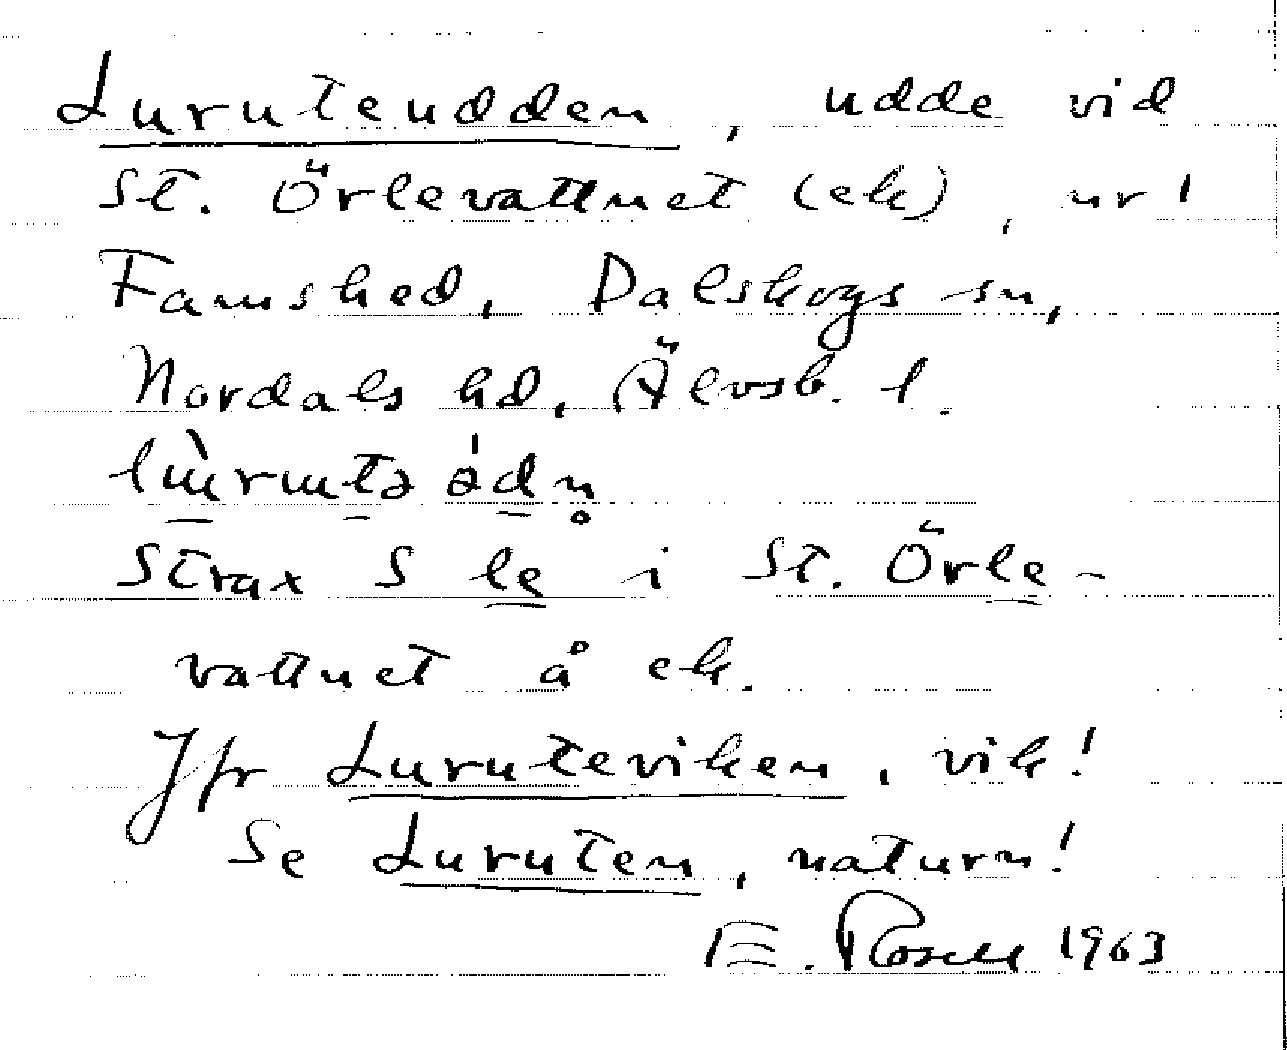 Luruteudden, udde vid
St. Örlevattnet (ek), nr 1
Famshed, Dalskogs sn,
Nordals hd, Älvsb. l.
strax S le i St. Örle-
vattnet å ek.
Jfr Luruteviken, vik!
Se Luruten, naturn!
E. Rosell 1963